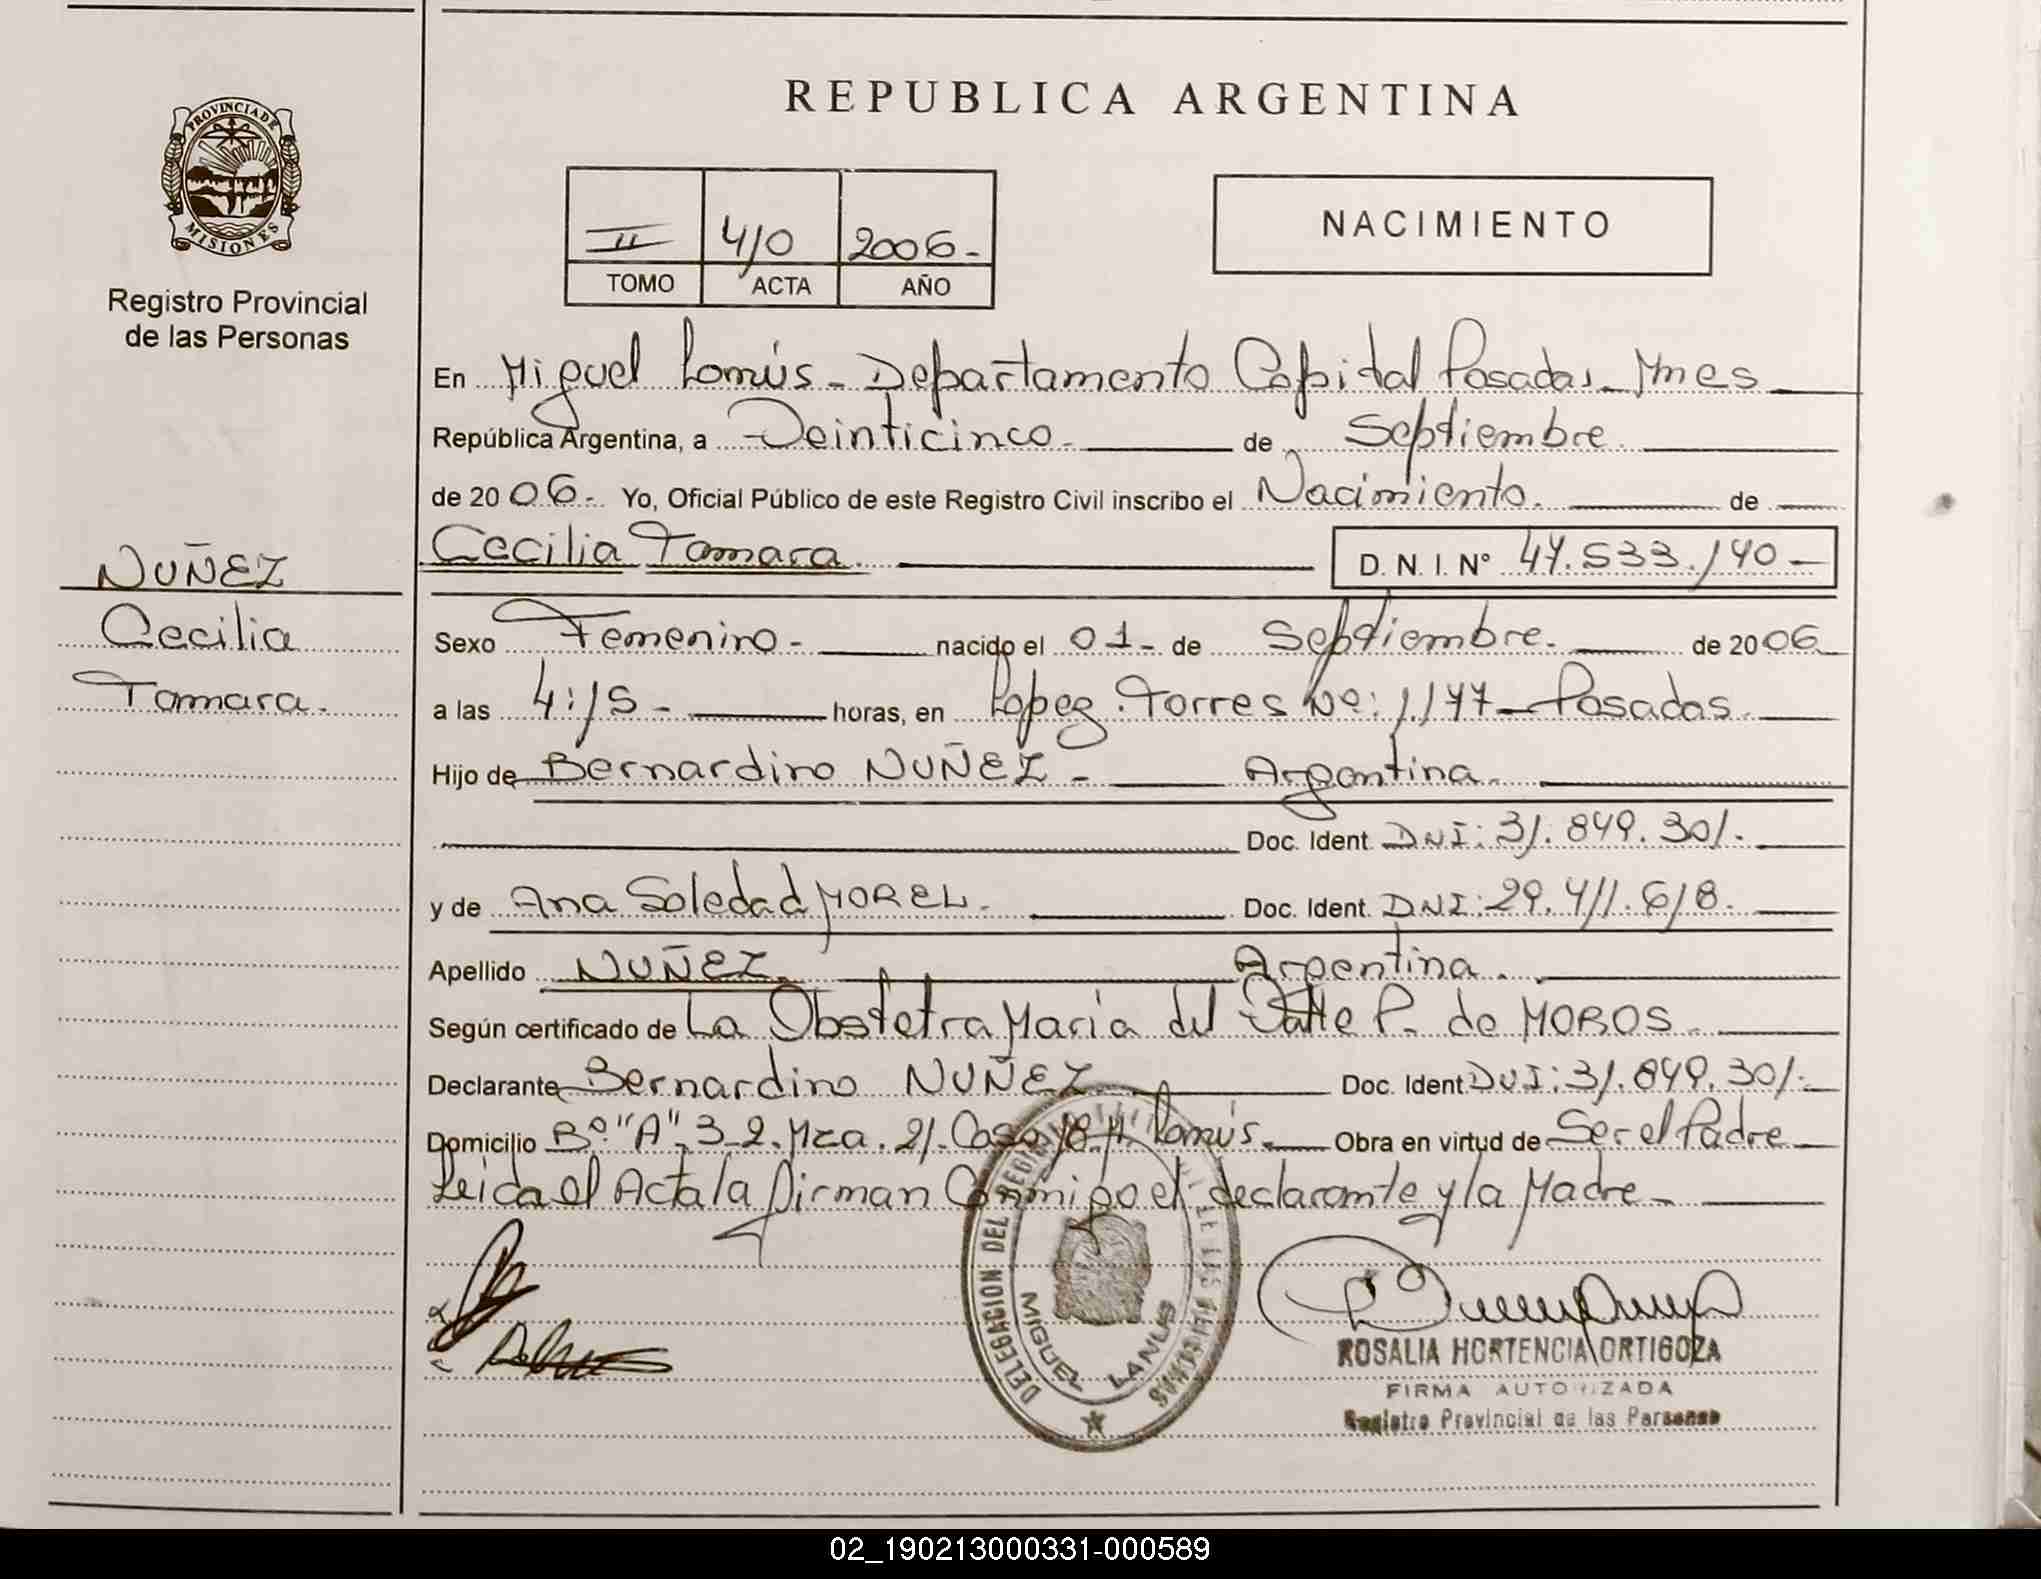 REPUBLICA ARGENTINA
PROVINCIA DE
MISIONES
Registro Provincial
de las Personas
II 410 2006.-
TOMO ACTA AÑO
NACIMIENTO
En Miguel Lanús - Departamento Capital Posadas - Mnes
República Argentina, a Veinticinco - de Septiembre.
de 2006.- Yo, Oficial Público de este Registro Civil inscribo el Nacimiento. de
NUÑEZ
Cecilia
Tamara.
Cecilia Tamara. D. N. I. Nº 47.533.140-
Sexo Femenino - nacido el 01 - de Septiembre. de 2006
a las 4:15 - horas, en Lopez Torres Nº: 1177 - Posadas.
Hijo de Bernardino NUÑEZ - Argentina.
Doc. Ident. DNI: 31.849.301.
y de Ana Soledad MOREL. Doc. Ident. DNI: 29.411.618.
Apellido NUÑEZ. Argentina.
Según certificado de La Obstetra Maria del Valle P. de MOROS.
Declarante Bernardino NUÑEZ Doc. Ident. DNI: 31.849.301.-
Domicilio Bº "A" 3-2. Mza. 21. Casa 18 M. Lanús. Obra en virtud de Ser el Padre
Leida el Acta la firman Conmigo el declarante y la Madre -
DELEGACION DEL REGISTRO
MIGUEL LANUS
ROSALIA HORTENCIA ORTIGOZA
FIRMA AUTORIZADA
Registro Provincial de las Personas
02_190213000331-000589